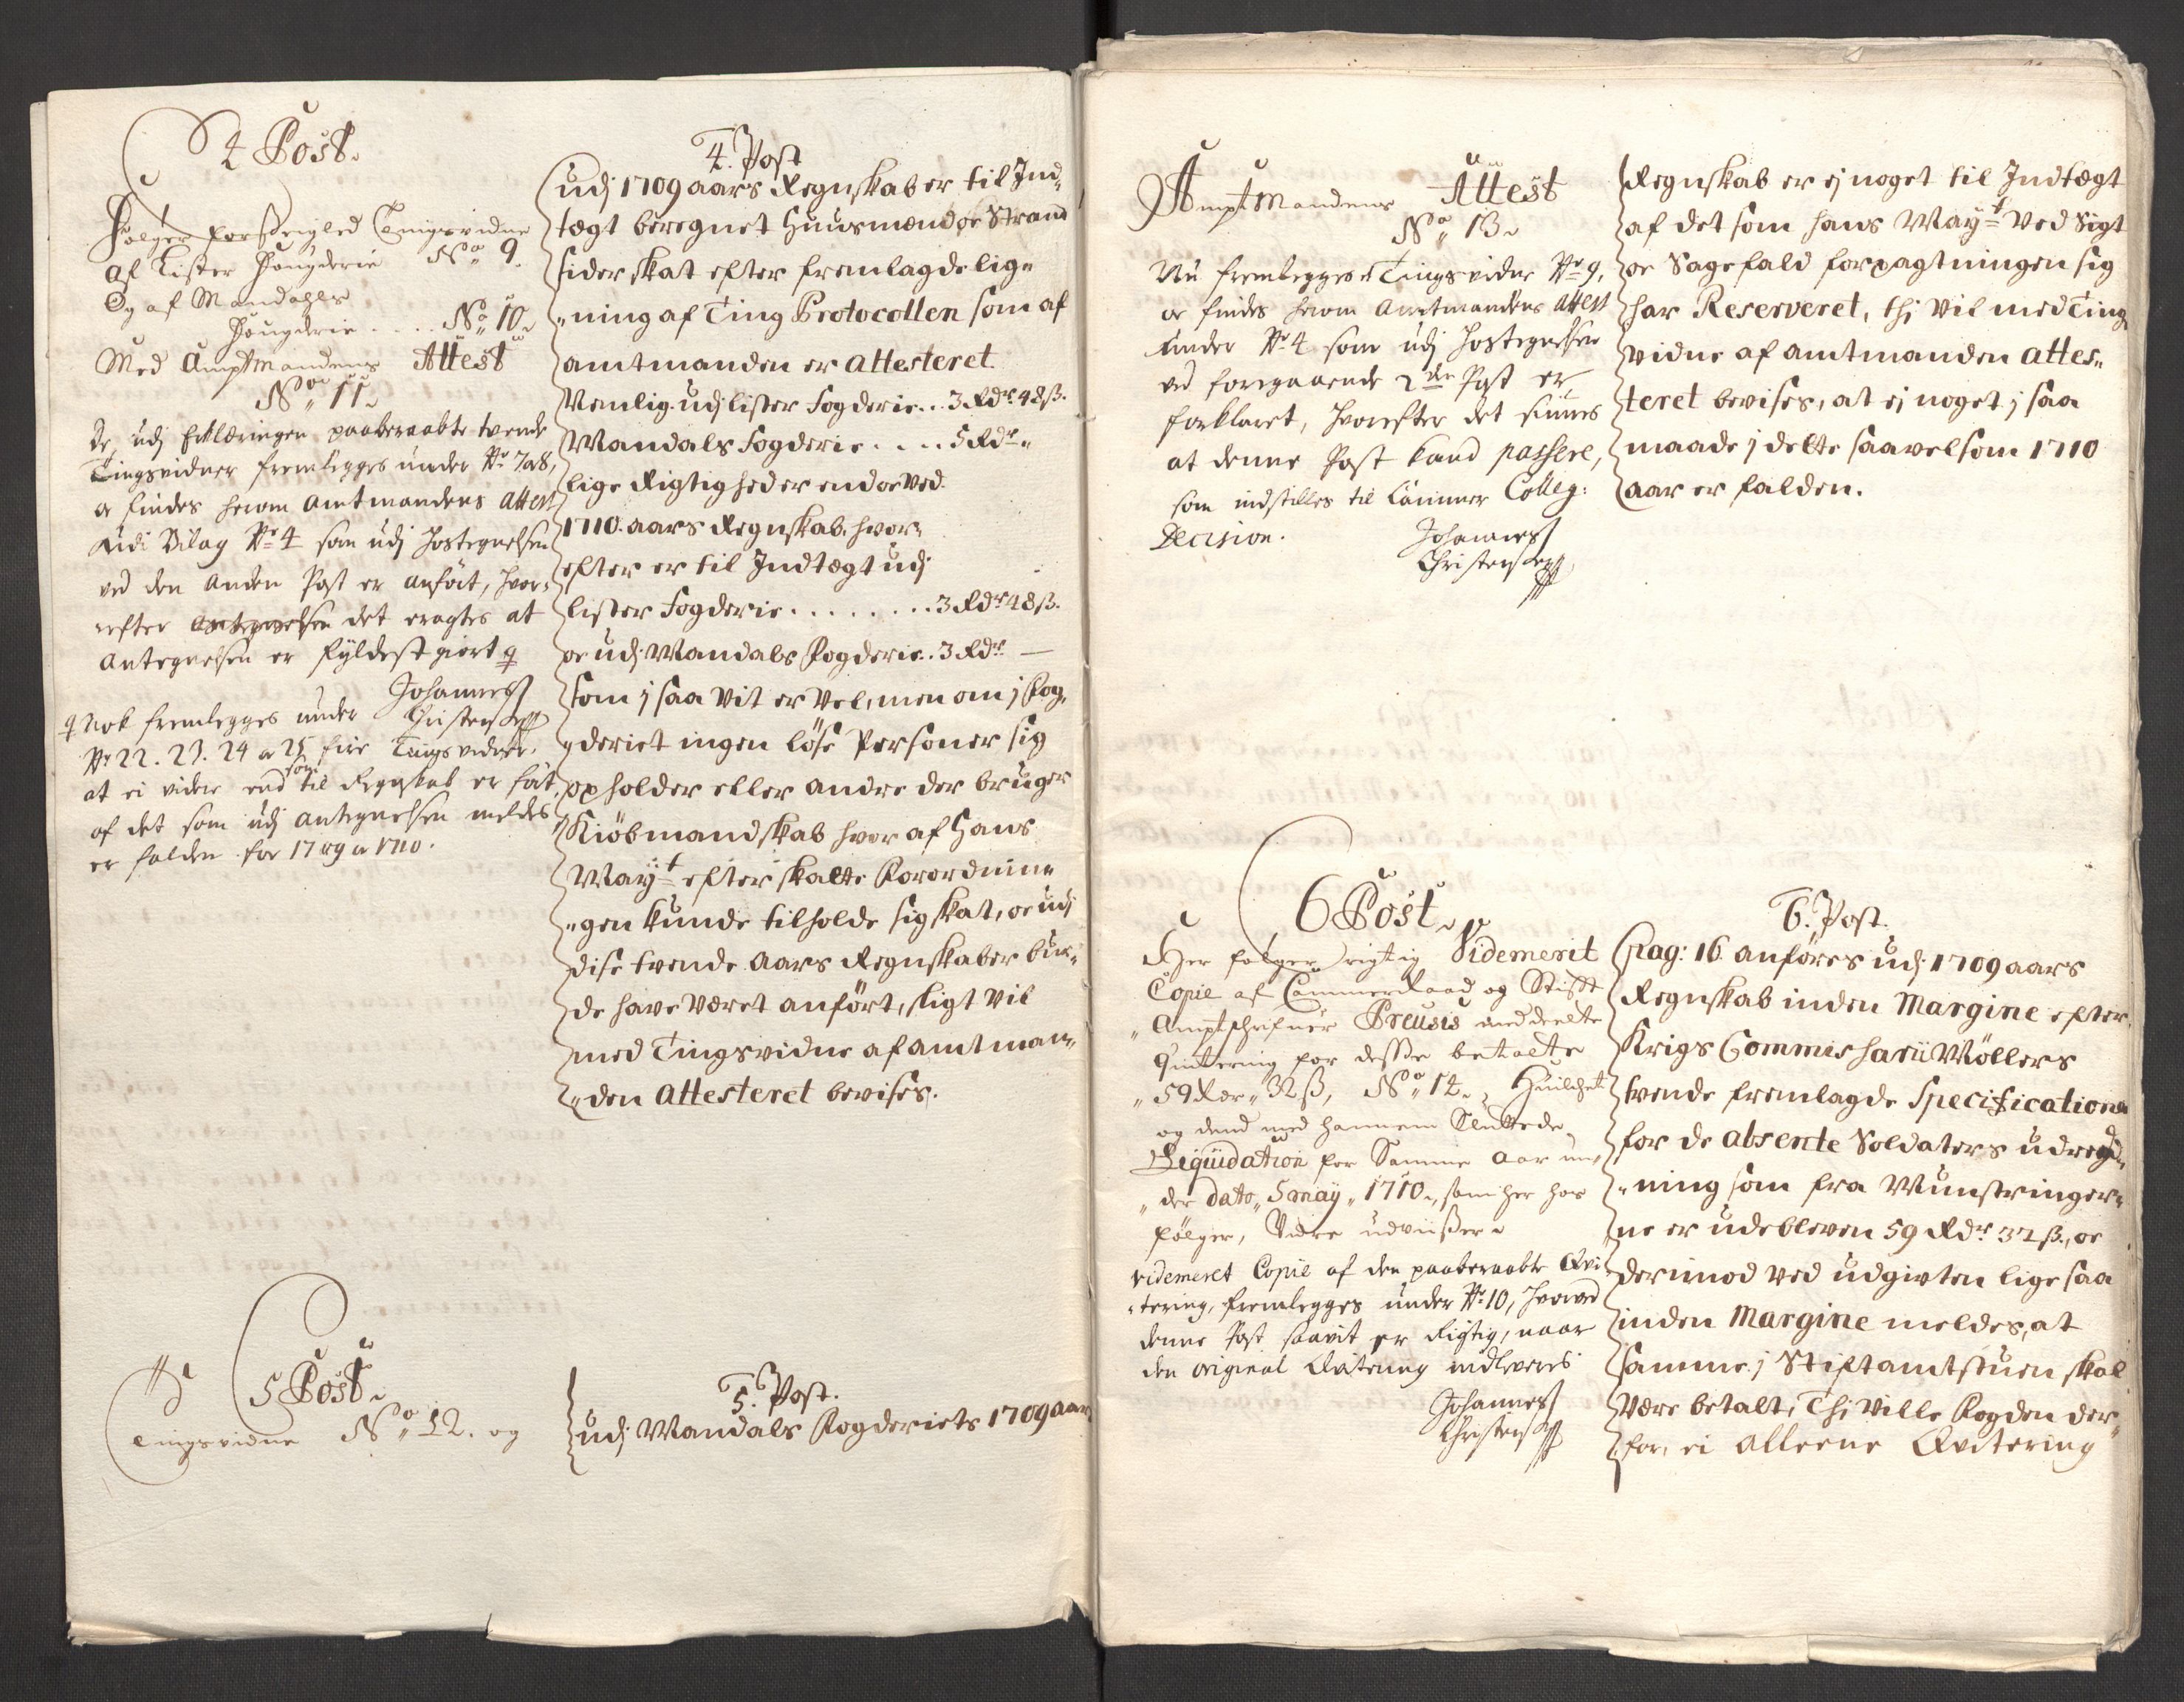 4 Post.
Følger forseigled Tingsvidne
af Lister Fougderie No 9.
Og af Mandahls
Fougderie .... No 10.
Med Amptmandens Attest
No 11.
De udj Erklæringen paaberaabte tvende
Tingsvidner fremlegges under No 7 og 8,
og findes herom Amtmandens Attest
udi Bilag No 4 som udj Hostegnelsen
ved den Anden Post er anført, hvor-
efter det eragtes at
Antegnelsen er fyldestgiort
Johannes
Christensen
Nok fremlegges under
No 22. 23. 24 og 25 fiire Tingsvidner.
at ei videre end som til Regnskab er ført,
af det som udj Antegnelsen meldes
er falden for 1709 og 1710.
4. Post
udj 1709 aars Regnskab er til Ind-
tægt beregnet Huusmænd og Strand
sider skat efter fremlagde lig-
ning af Ting Protocollen som af
amtmanden er attesteret.
Nemlig. udj Lister fogderie... 3 Rdr 48 ß.
Mandals fogderie .... 5 Rdr
lige Rigtighed er end og ved
1710. aars Regnskab, hvor-
efter er til Indtægt udj
Lister fogderie ........ 3 Rdr 48 ß.
og udj Mandals Fogderie.. 3 Rdr —
som j saa vit er vel, men om j Fog-
deriet ingen løse Personer sig
opholder eller andre der bruger
Kiøbmandskab hvor af Hans
Mayt efter skatte Forordnin-
gen kunde tilholde sig skat, og udj
dise tvende aars Regnskaber bur-
de have været anført, sligt vil
med Tingsvidne af amtman-
den Attesteret bevises.
5 Post
Tingsvidne No 12. og
5. Post.
udj Mandals Fogderiets 1709 aars
AmptMandens Attest
No 13
Nu fremlegges et Tingsvidne No 9,
og findes herom Amtmandens Attest
under No 4 som udj Hostegnelsen
ved foregaaende 2den Post er
forklaret, hvorefter det siunes
at denne Post kand passere,
som indstilles til Cammer Colleg:
Decision.
Johannes
Christensen
Regnskab er ej noget til Indtægt
af det som hans Mayt ved Sigt
og Sagefald forpagtningen sig
har Reserveret, thi vil med Ting
vidne af amtmanden attes-
teret bevises, at ej noget j saa
maade j dette saavelsom 1710
aar er falden.
6 Post
Her følger rigtig Videmerit
Copie af CammerRaad og Stift
Amptschrifuer Breusis meddeelte
Quittering for desse betalte
59 Rdr 32 ß, No 14. Huilchet
og dend med hannem Sluttede
Liqvidation for Samme Aar un-
der dato 5 may 1710, som her hos
følger, Videre udviiser
videmeret Copie af den paaberaabte Qvi-
tering, fremlegges under No 10, hvorved
denne Post saavit er Rigtig, naar
den original Qvitering indleveres
Johannes
Christensen
6. Post.
Pag: 16 anføres udj 1709 aars
Regnskab inden Margine efter
Krigs Commissarii Møllers
tvende fremlagde Specificationer
for de absente Soldaters udreed-
ning som fra Mynstringer-
ne er udebleven 59 Rdr 32 ß., og
derimod ved udgivten lige saa
inden Margine meldes, at
samme j Stiftamtstuen skal
være betalt, Thi ville Fogden der-
for, ei alleene Qvitering